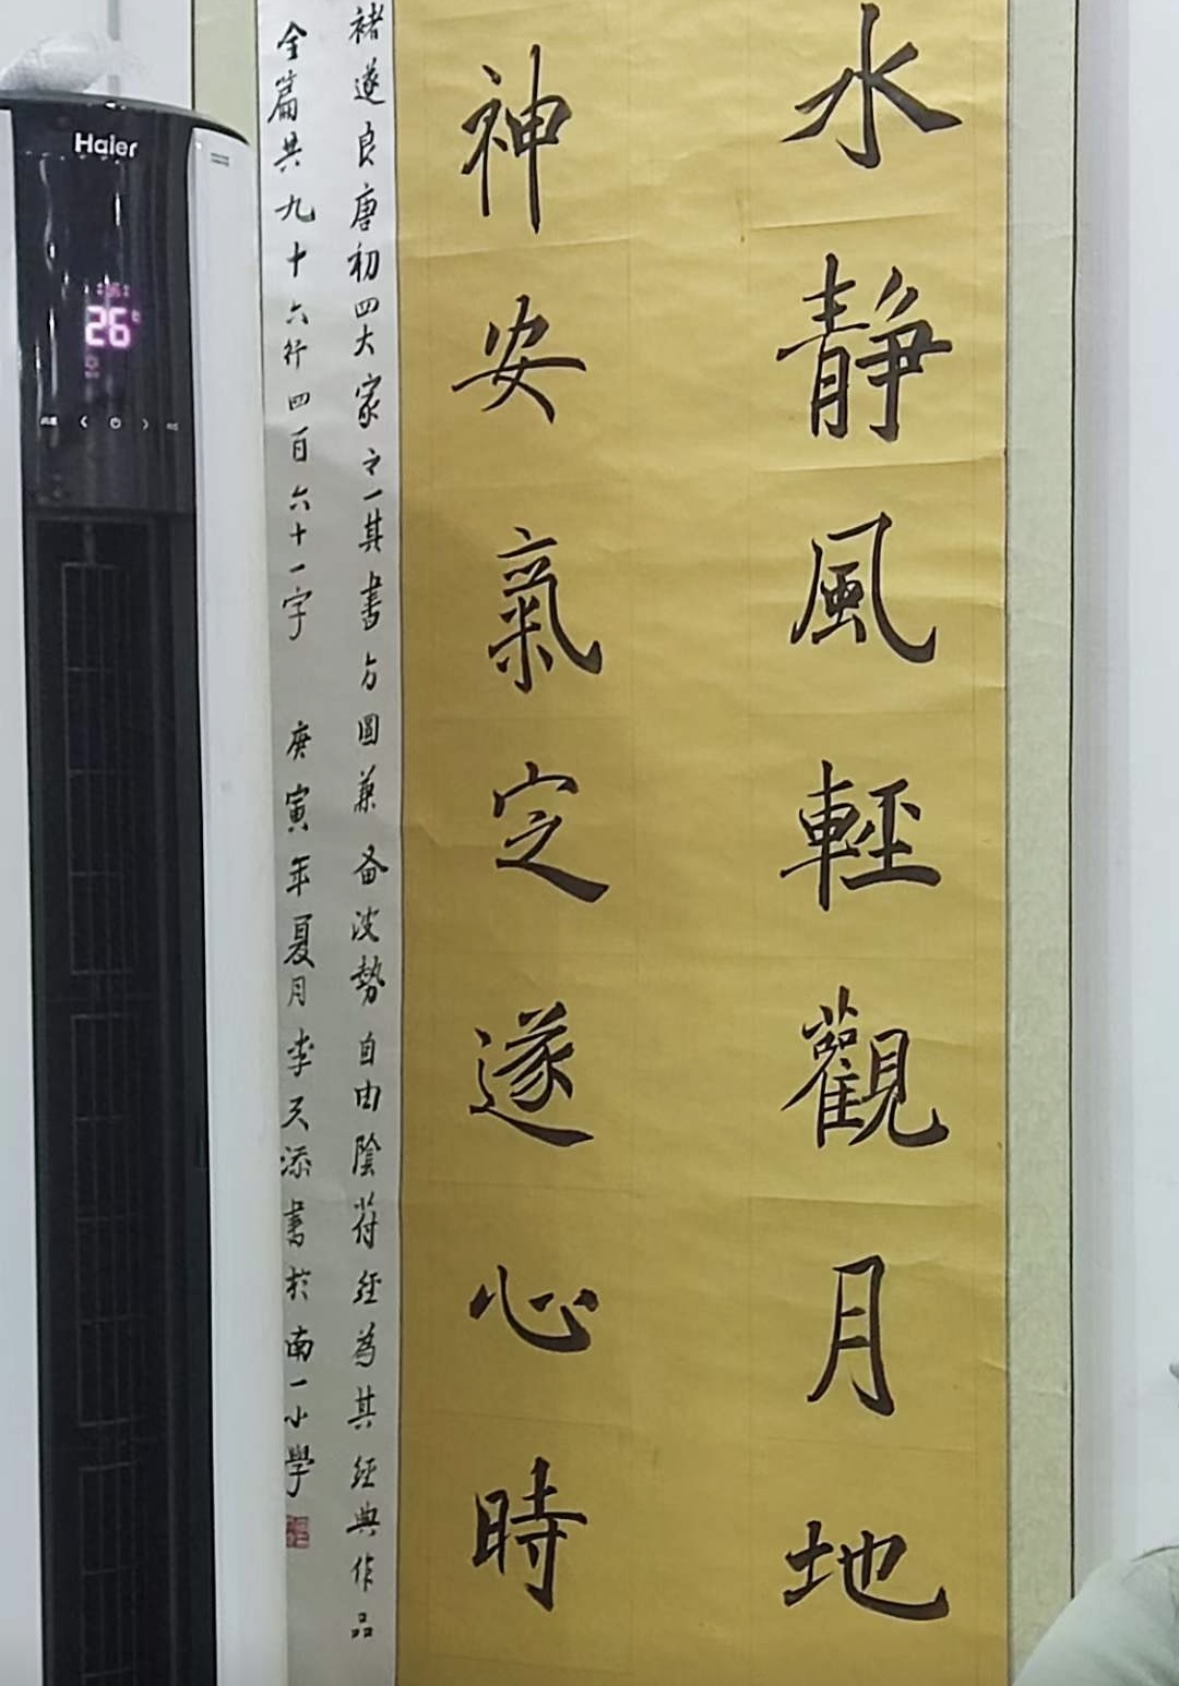 水靜風輕觀月地
神安氣定遂心時
褚遂良唐初四大家之一其書方圓兼备波勢自由陰符經為其經典作品
全篇共九十六行四百六十一字 庚寅年夏月李天添書於南一小學
Haier
26